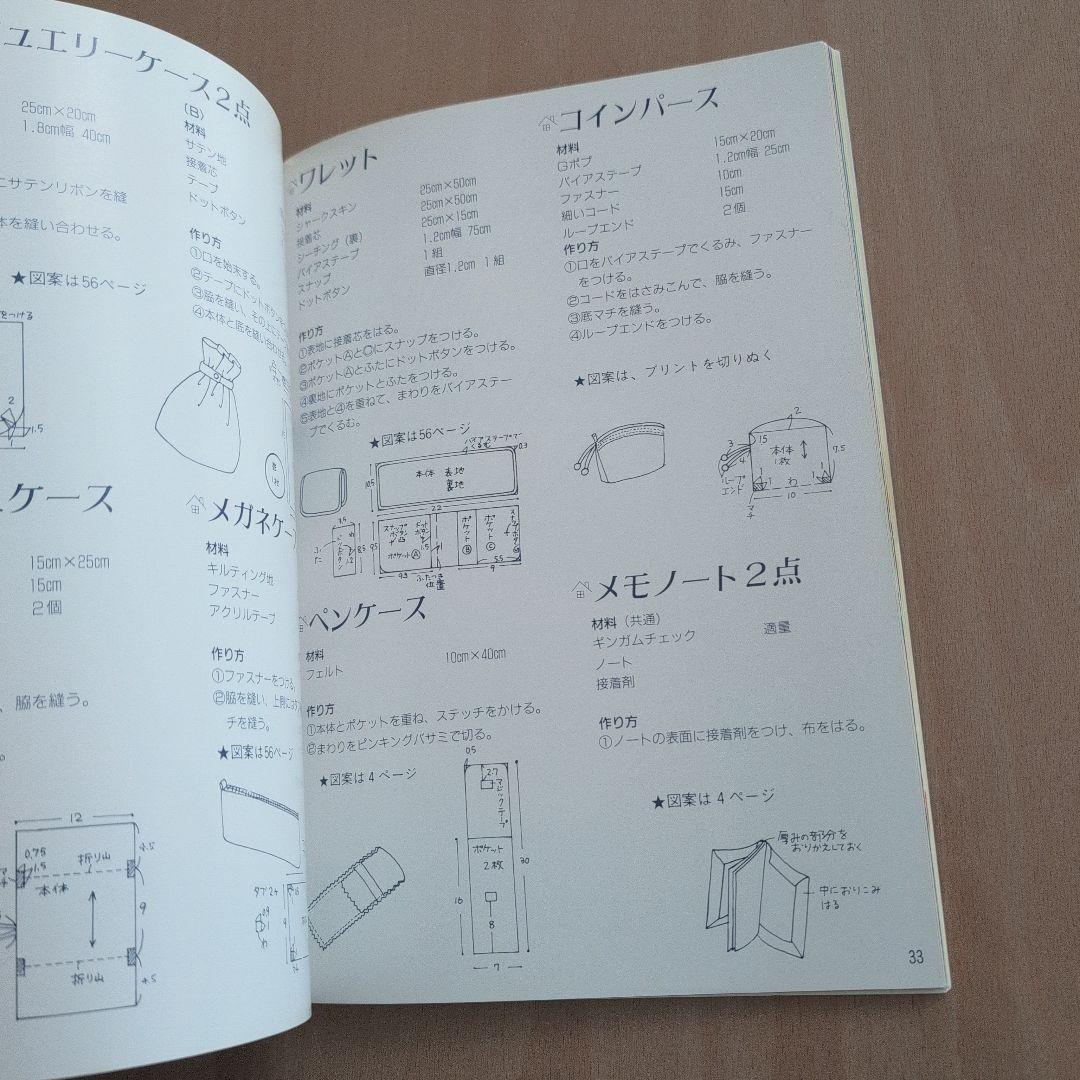 ュエリーケース2点
25cm×20cm
1.8cm幅 40cm
にサテンリボンを縫
体を縫い合わせる。
★図案は56ページ
をつける
2
1.5
1
(B)
材料
サテン地
接着芯
テープ
ドットボタン
作り方
①口を始末する。
②テープにドットボタンを
③脇を縫い、その上に
④本体と底を縫い合わせ
ケース
15cm×25cm
15cm
2個
、脇を縫う。
12
0.75
1.5
マチ
折り山
本体
4.5
9
折り山
4.5
メガネケー
材料
キルティング地
ファスナー
アクリルテープ
作り方
①ファスナーをつける。
②脇を縫い、上側には
チを縫う。
★図案は56ページ
タブ2ヶ
わ
ワレット
材料
シャークスキン 25cm×50cm
接着芯 25cm×50cm
シーチング（裏） 25cm×15cm
バイアステープ 1.2cm幅 75cm
スナップ 1組
ドットボタン 直径1.2cm 1組
作り方
①表地に接着芯をはる。
②ポケットⒶと◯にスナップをつける。
③ポケットⒶとふたにドットボタンをつける。
④裏地にポケットとふたをつける。
⑤表地と④を重ねて、まわりをバイアステー
プでくるむ。
★図案は56ページ
バイアステープで
くるむ
0.3
10.5
本体 表地
裏地
22
3.5
ふた
8.5
9.5
スナップ
ボタン
凸
ドット
ボタン
凸
1.5
ポケットⒶ
ポケットⒷ
ポケットⒸ
9.5
ふたつき
位置
5.5
9
ペンケース
材料
フェルト 10cm×40cm
作り方
①本体とポケットを重ね、ステッチをかける。
②まわりをピンキングバサミで切る。
★図案は4ページ
0.5
2.7
マジックテープ
ポケット
2枚
30
16
8
7
コインパース
材料
Gポプ 15cm×20cm
バイアステープ 1.2cm幅 25cm
ファスナー 10cm
細いコード 15cm
ループエンド 2個
作り方
①口をバイアステープでくるみ、ファスナー
をつける。
②コードをはさみこんで、脇を縫う。
③底マチを縫う。
④ループエンドをつける。
★図案は、プリントを切りぬく
2
3
4
15
本体
1枚
7.5
ループ
エンド
1
1
わ
1
1
10
マチ
メモノート2点
材料（共通）
ギンガムチェック 適量
ノート
接着剤
作り方
①ノートの表面に接着剤をつけ、布をはる。
★図案は4ページ
厚みの部分を
おりかえしておく
中におりこみ
はる
33